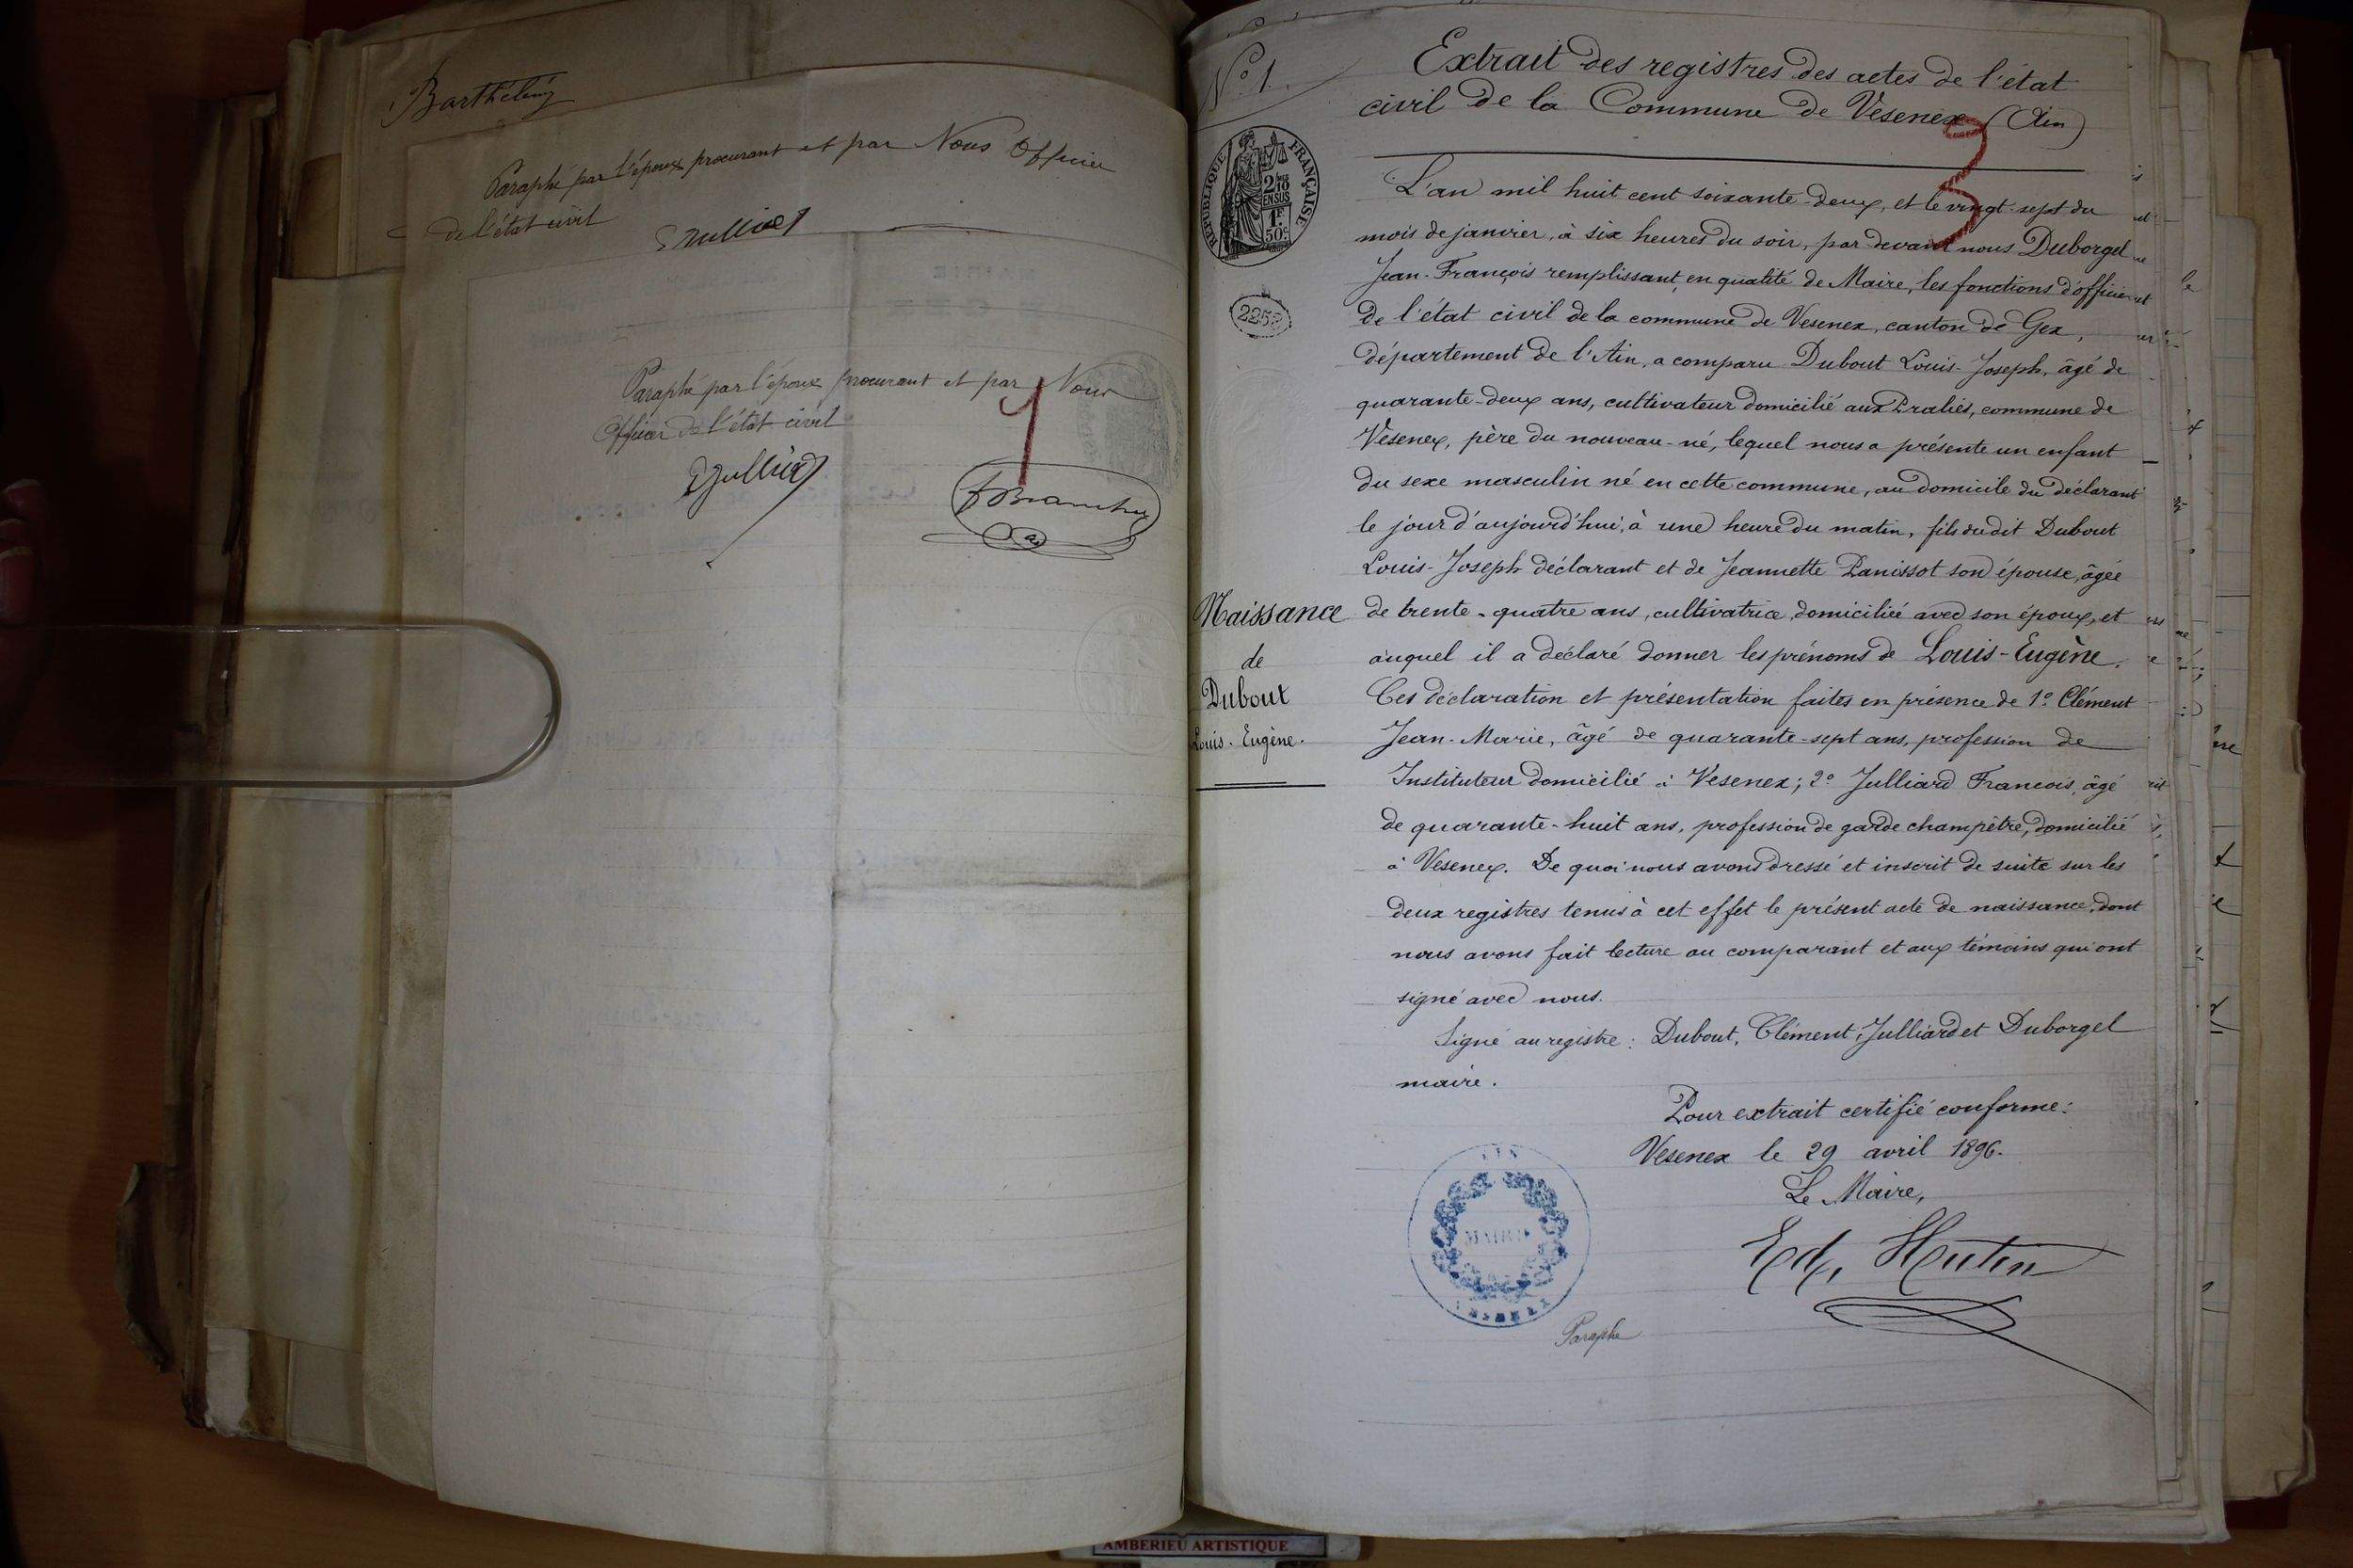 Barthélémy
Paraphé par l'époux procurant et par Nous Officier
de l'état civil
Paraphé par l'époux procurant et par Nous
Officier de l'état civil
1
N° 1.
Extrait des registres des actes de l'état
civil de la Commune de Vesenex (Ain)
3
RÉPUBLIQUE FRANÇAISE
2/10
EN SUS
1F
50c
L'an mil huit cent soixante-deux, et le vingt-sept du
mois de janvier, à six heures du soir, par devant nous Duborgel
Jean-François remplissant, en qualité de Maire, les fonctions d'officier
de l'état civil de la commune de Vesenex, canton de Gex,
département de l'Ain, a comparu Dubout Louis-Joseph, âgé de
quarante-deux ans, cultivateur domicilié aux Pralies, commune de
Vesenex, père du nouveau-né, lequel nous a présenté un enfant
du sexe masculin né en cette commune, au domicile du déclarant
le jour d'aujourd'hui, à une heure du matin, fils du dit Dubout
Louis-Joseph déclarant et de Jeannette Panissot son épouse, âgée
de trente-quatre ans, cultivatrice, domiciliée avec son époux, et
auquel il a déclaré donner les prénoms de Louis-Eugène.
Ces déclaration et présentation faites en présence de 1° Clément
Jean-Marie, âgé de quarante-sept ans, profession de
Instituteur domicilié à Vesenex; 2° Julliard Francois, âgé
de quarante-huit ans, profession de garde champêtre, domicilié
à Vesenex. De quoi nous avons dressé et inscrit de suite sur les
deux registres tenus à cet effet le présent acte de naissance, dont
nous avons fait lecture au comparant et aux témoins qui ont
signé avec nous.
Signé au registre: Dubout, Clément, Julliard et Duborgel
maire.
Naissance
de
Dubout
Louis-Eugène.
Pour extrait certifié conforme:
Vesenex le 29 avril 1896.
Le Maire,
Ed. Hutin
MAIRIE
Paraphe
AMBERIEU ARTISTIQUE